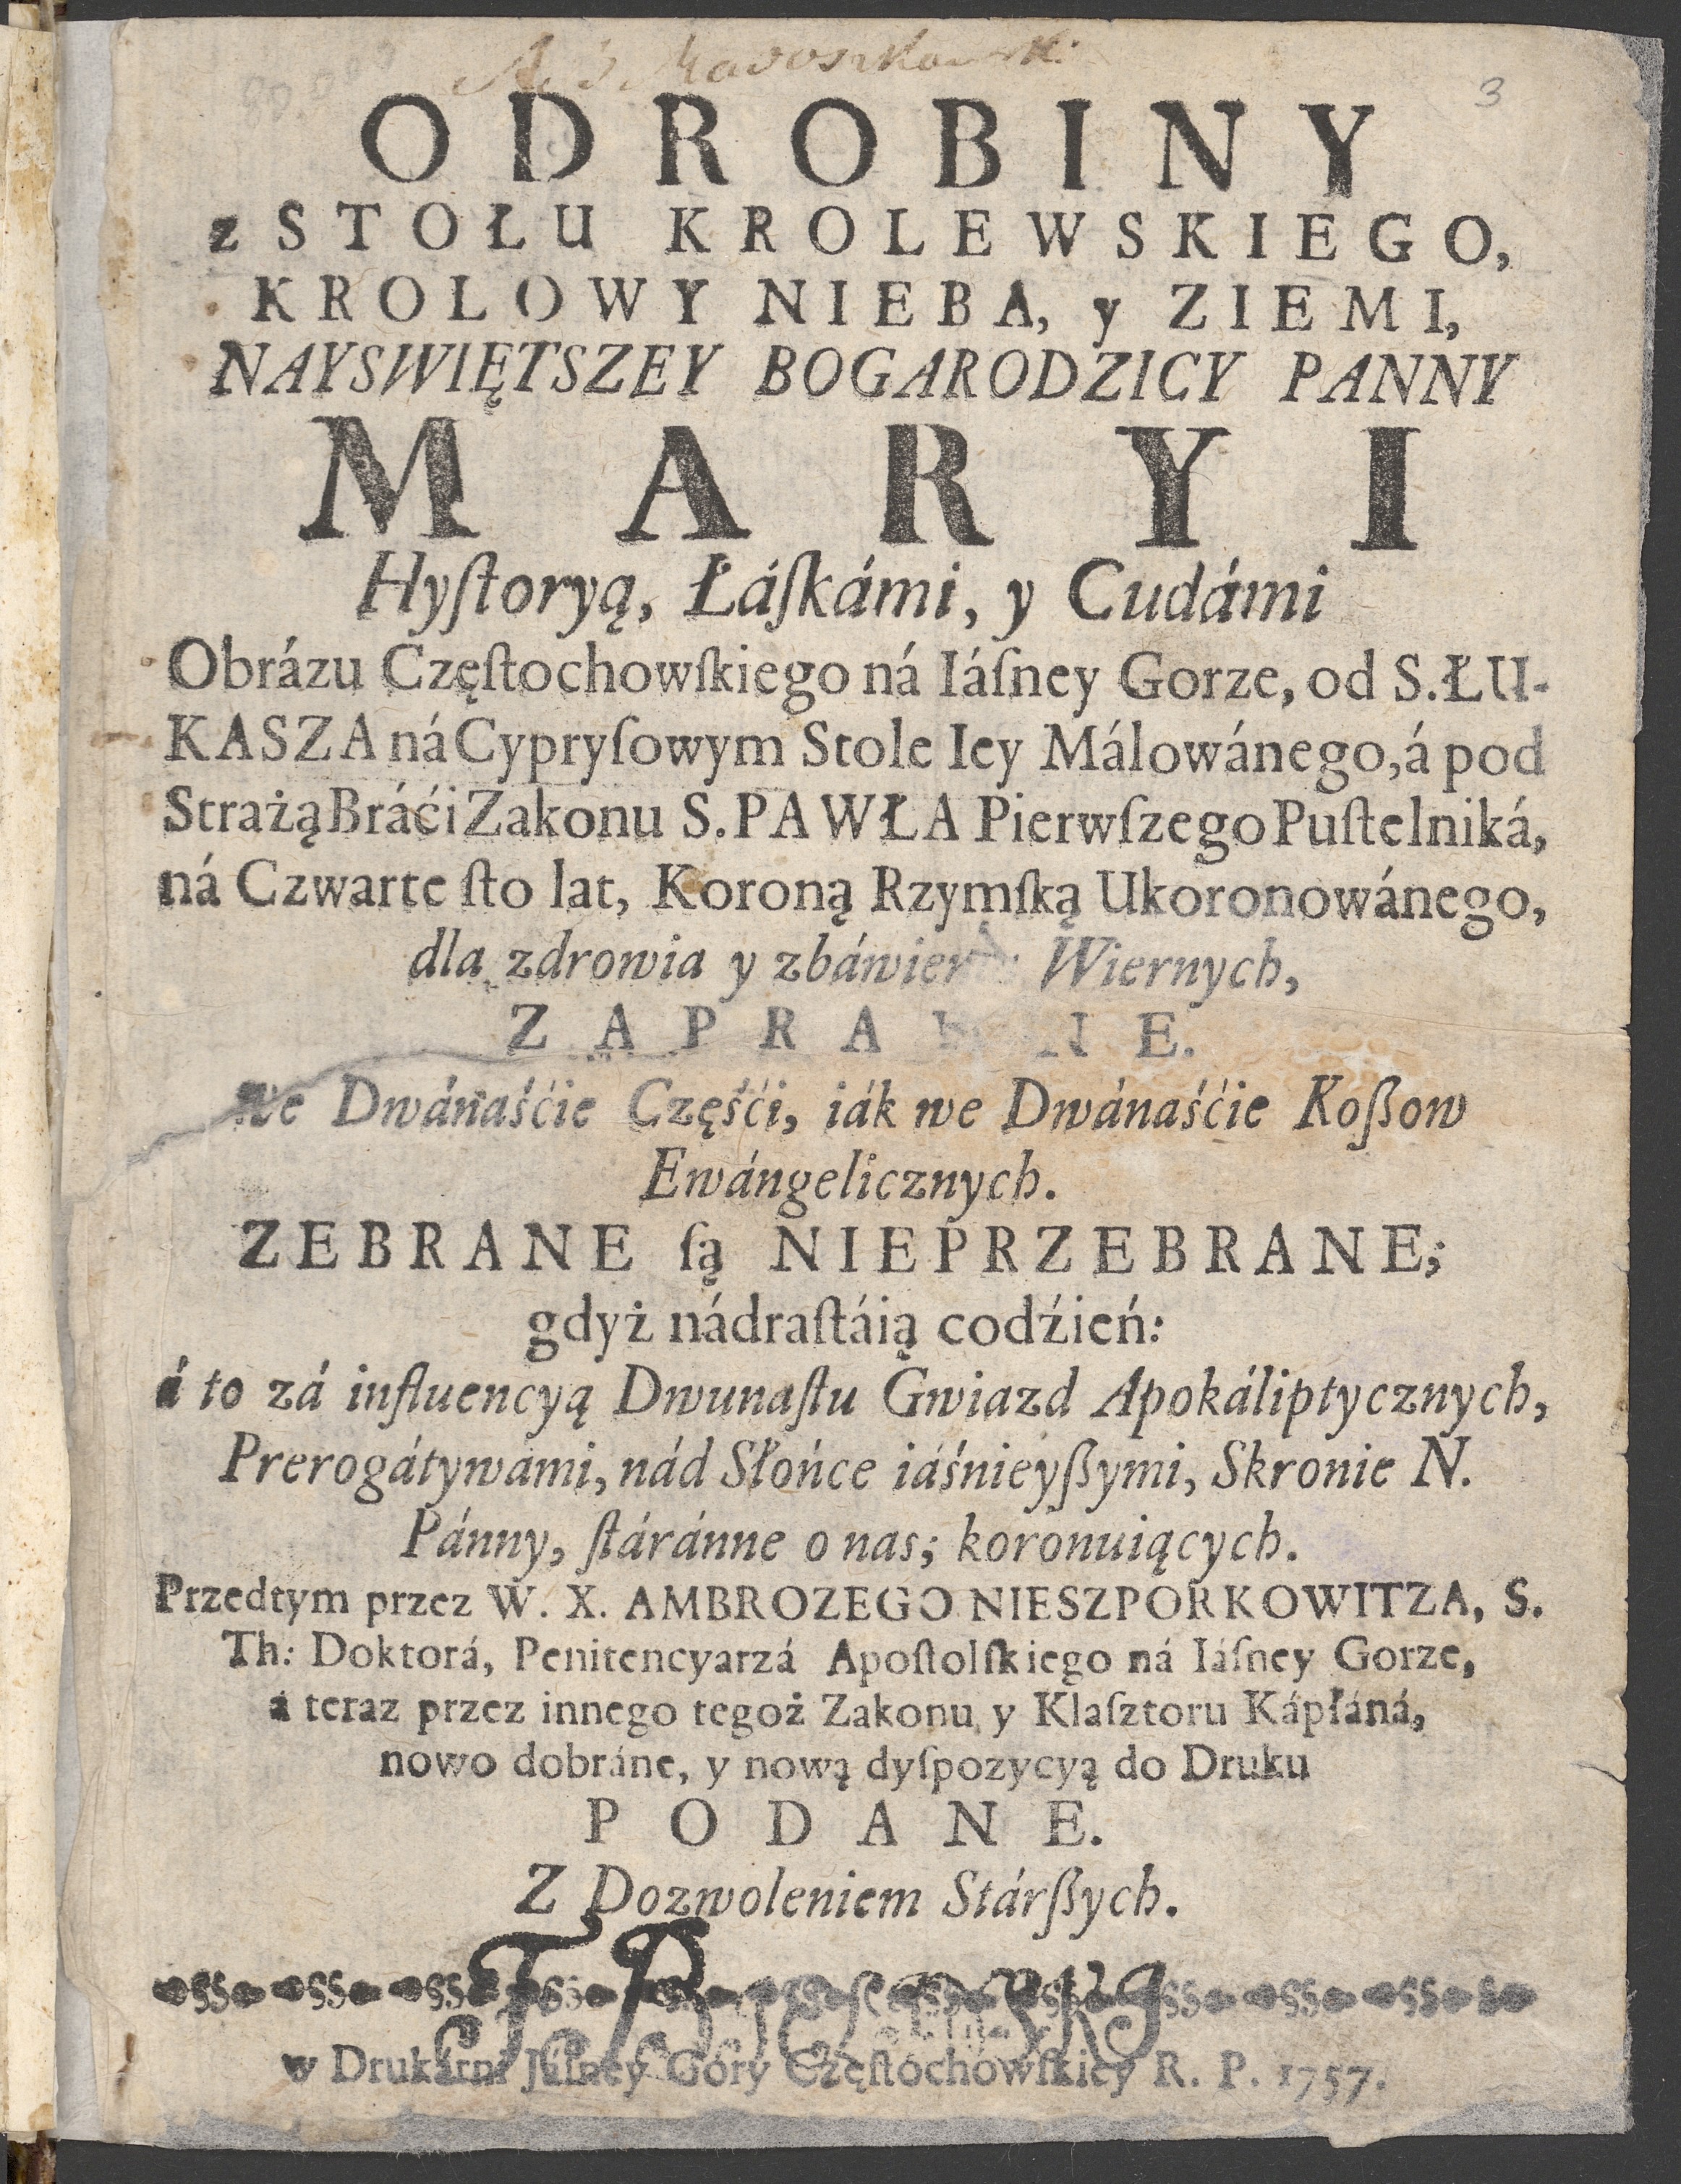 3
ODROBINY
z STOŁU KROLEWSKIEGO,
KROLOWY NIEBA, y ZIEMI,
NAYSWIĘTSZEY BOGARODZICY PANNY
MARYI
Hyſtoryą, Łáſkámi, y Cudámi
Obrázu Częſtochowſkiego ná Iáſney Gorze, od S. ŁU-
KASZA ná Cypryſowym Stole Iey Málowánego, á pod
Strażą Bráći Zakonu S. PAWŁA Pierwſzego Puſtelniká,
ná Czwarte ſto lat, Koroną Rzymſką Ukoronowánego,
dla zdrowia y Wiernych,
we Dwánaśćie Częśći, iák we Dwánaśćie Koßow
Ewángelicznych.
ZEBRANE ſą NIEPRZEBRANE;
gdyż nádraſtáią codźień:
á to zá influencyą Dwunaſtu Gwiazd Apokáliptycznych,
Prerogátywámi, nád Słońce iáśnieyßymi, Skronie N.
Pánny, ſtáránne o nas; koronuiących.
Przedtym przez W. X. AMBROZEGO NIESZPORKOWITZA, S.
Th: Doktorá, Penitencyarzá Apoſtolſkiego ná Iáſney Gorze,
á teraz przez innego tegoż Zakonu y Klaſztoru Kápłáná,
nowo dobráne, y nową dyſpozycyą do Druku
PODANE.
Z Dozwoleniem Stárßych.
w Drukárni Jáſney Gory Częſtochowſkiey R. P. 1757.